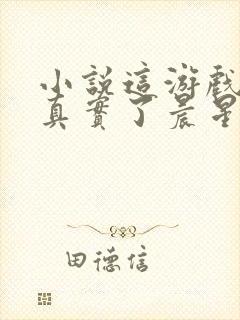 小說這游戲
真實了晨星
田德信